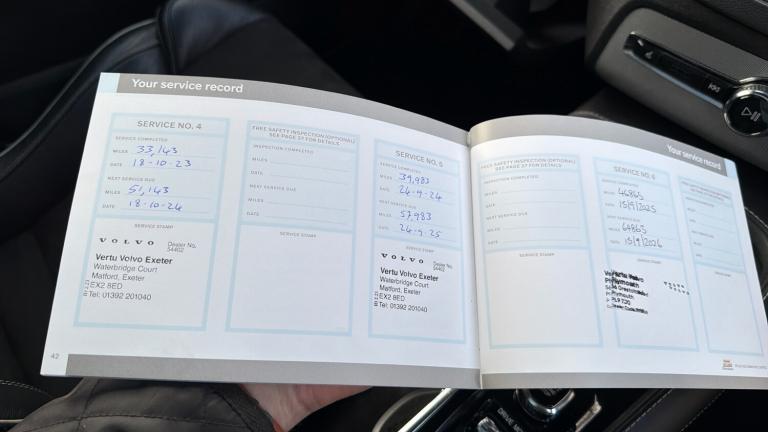 Your service record
SERVICE NO. 4
SERVICE COMPLETED
MILES 33,143
DATE 18-10-23
NEXT SERVICE DUE
MILES 51,143
DATE 18-10-24
SERVICE STAMP
VOLVO Dealer No. 54402
Vertu Volvo Exeter
Waterbridge Court
Matford, Exeter
EX2 8ED
Tel: 01392 201040
42
FREE SAFETY INSPECTION (OPTIONAL)
SEE PAGE 37 FOR DETAILS
INSPECTION COMPLETED
MILES
DATE
NEXT SERVICE DUE
MILES
DATE
SERVICE STAMP
SERVICE NO. 5
SERVICE COMPLETED
MILES 39,983
DATE 24-9-24
NEXT SERVICE DUE
MILES 57,983
DATE 24-9-25
SERVICE STAMP
VOLVO Dealer No. 54402
Vertu Volvo Exeter
Waterbridge Court
Matford, Exeter
EX2 8ED
Tel: 01392 201040
Your service record
FREE SAFETY INSPECTION (OPTIONAL)
SEE PAGE 37 FOR DETAILS
INSPECTION COMPLETED
MILES
DATE
NEXT SERVICE DUE
MILES
DATE
SERVICE STAMP
SERVICE NO. 6
SERVICE COMPLETED
MILES 46865
DATE 15/9/2025
NEXT SERVICE DUE
MILES 64865
DATE 15/9/2026
SERVICE STAMP
VOLVO
Plymouth
Plymouth
SERVICE STAMP
DRIVE MODE